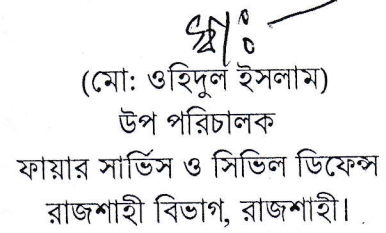 স্বা:
(মো: ওহিদুল ইসলাম)
উপ পরিচালক
ফায়ার সার্ভিস ও সিভিল ডিফেন্স
রাজশাহী বিভাগ, রাজশাহী।